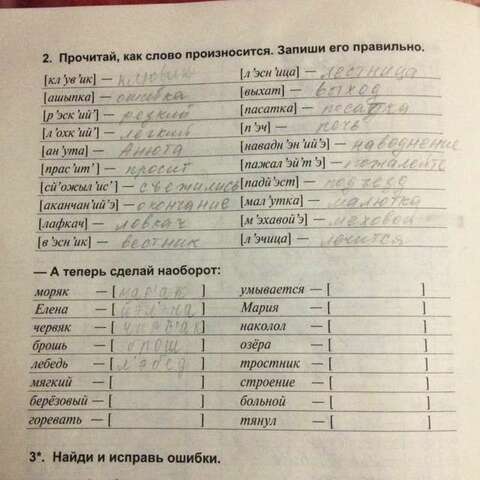 2. Прочитай, как слово произносится. Запиши его правильно.
[кл'ув'ик] — клювик [л'эсн'ица] — лестница
[ашыпка] — ошибка [выхат] — выход
[р'эск'ий'] — резкий [пасатка] — посадка
[л'охк'ий'] — лёгкий [п'эч] — печь
[ан'ута] — Анюта [навадн'эн'ий'э] — наводнение
[прас'ит'] — просит [пажал'эй'т'э] — пожалейте
[сй'ожыл'ис'] — съёжились [падй'эст] — подъезд
[аканчан'ий'э] — окончание [мал'утка] — малютка
[лафкач] — ловкач [м'эхавой'э] — меховой
[в'эсн'ик] — вестник [л'эчица] — лечится
— А теперь сделай наоборот:
моряк — [мар'ак] умывается — [ ]
Елена — [ ] Мария — [ ]
червяк — [ ] наколол — [ ]
брошь — [ ] озёра — [ ]
лебедь — [ ] тростник — [ ]
мягкий — [ ] строение — [ ]
берёзовый — [ ] больной — [ ]
горевать — [ ] тянул — [ ]
3*. Найди и исправь ошибки.